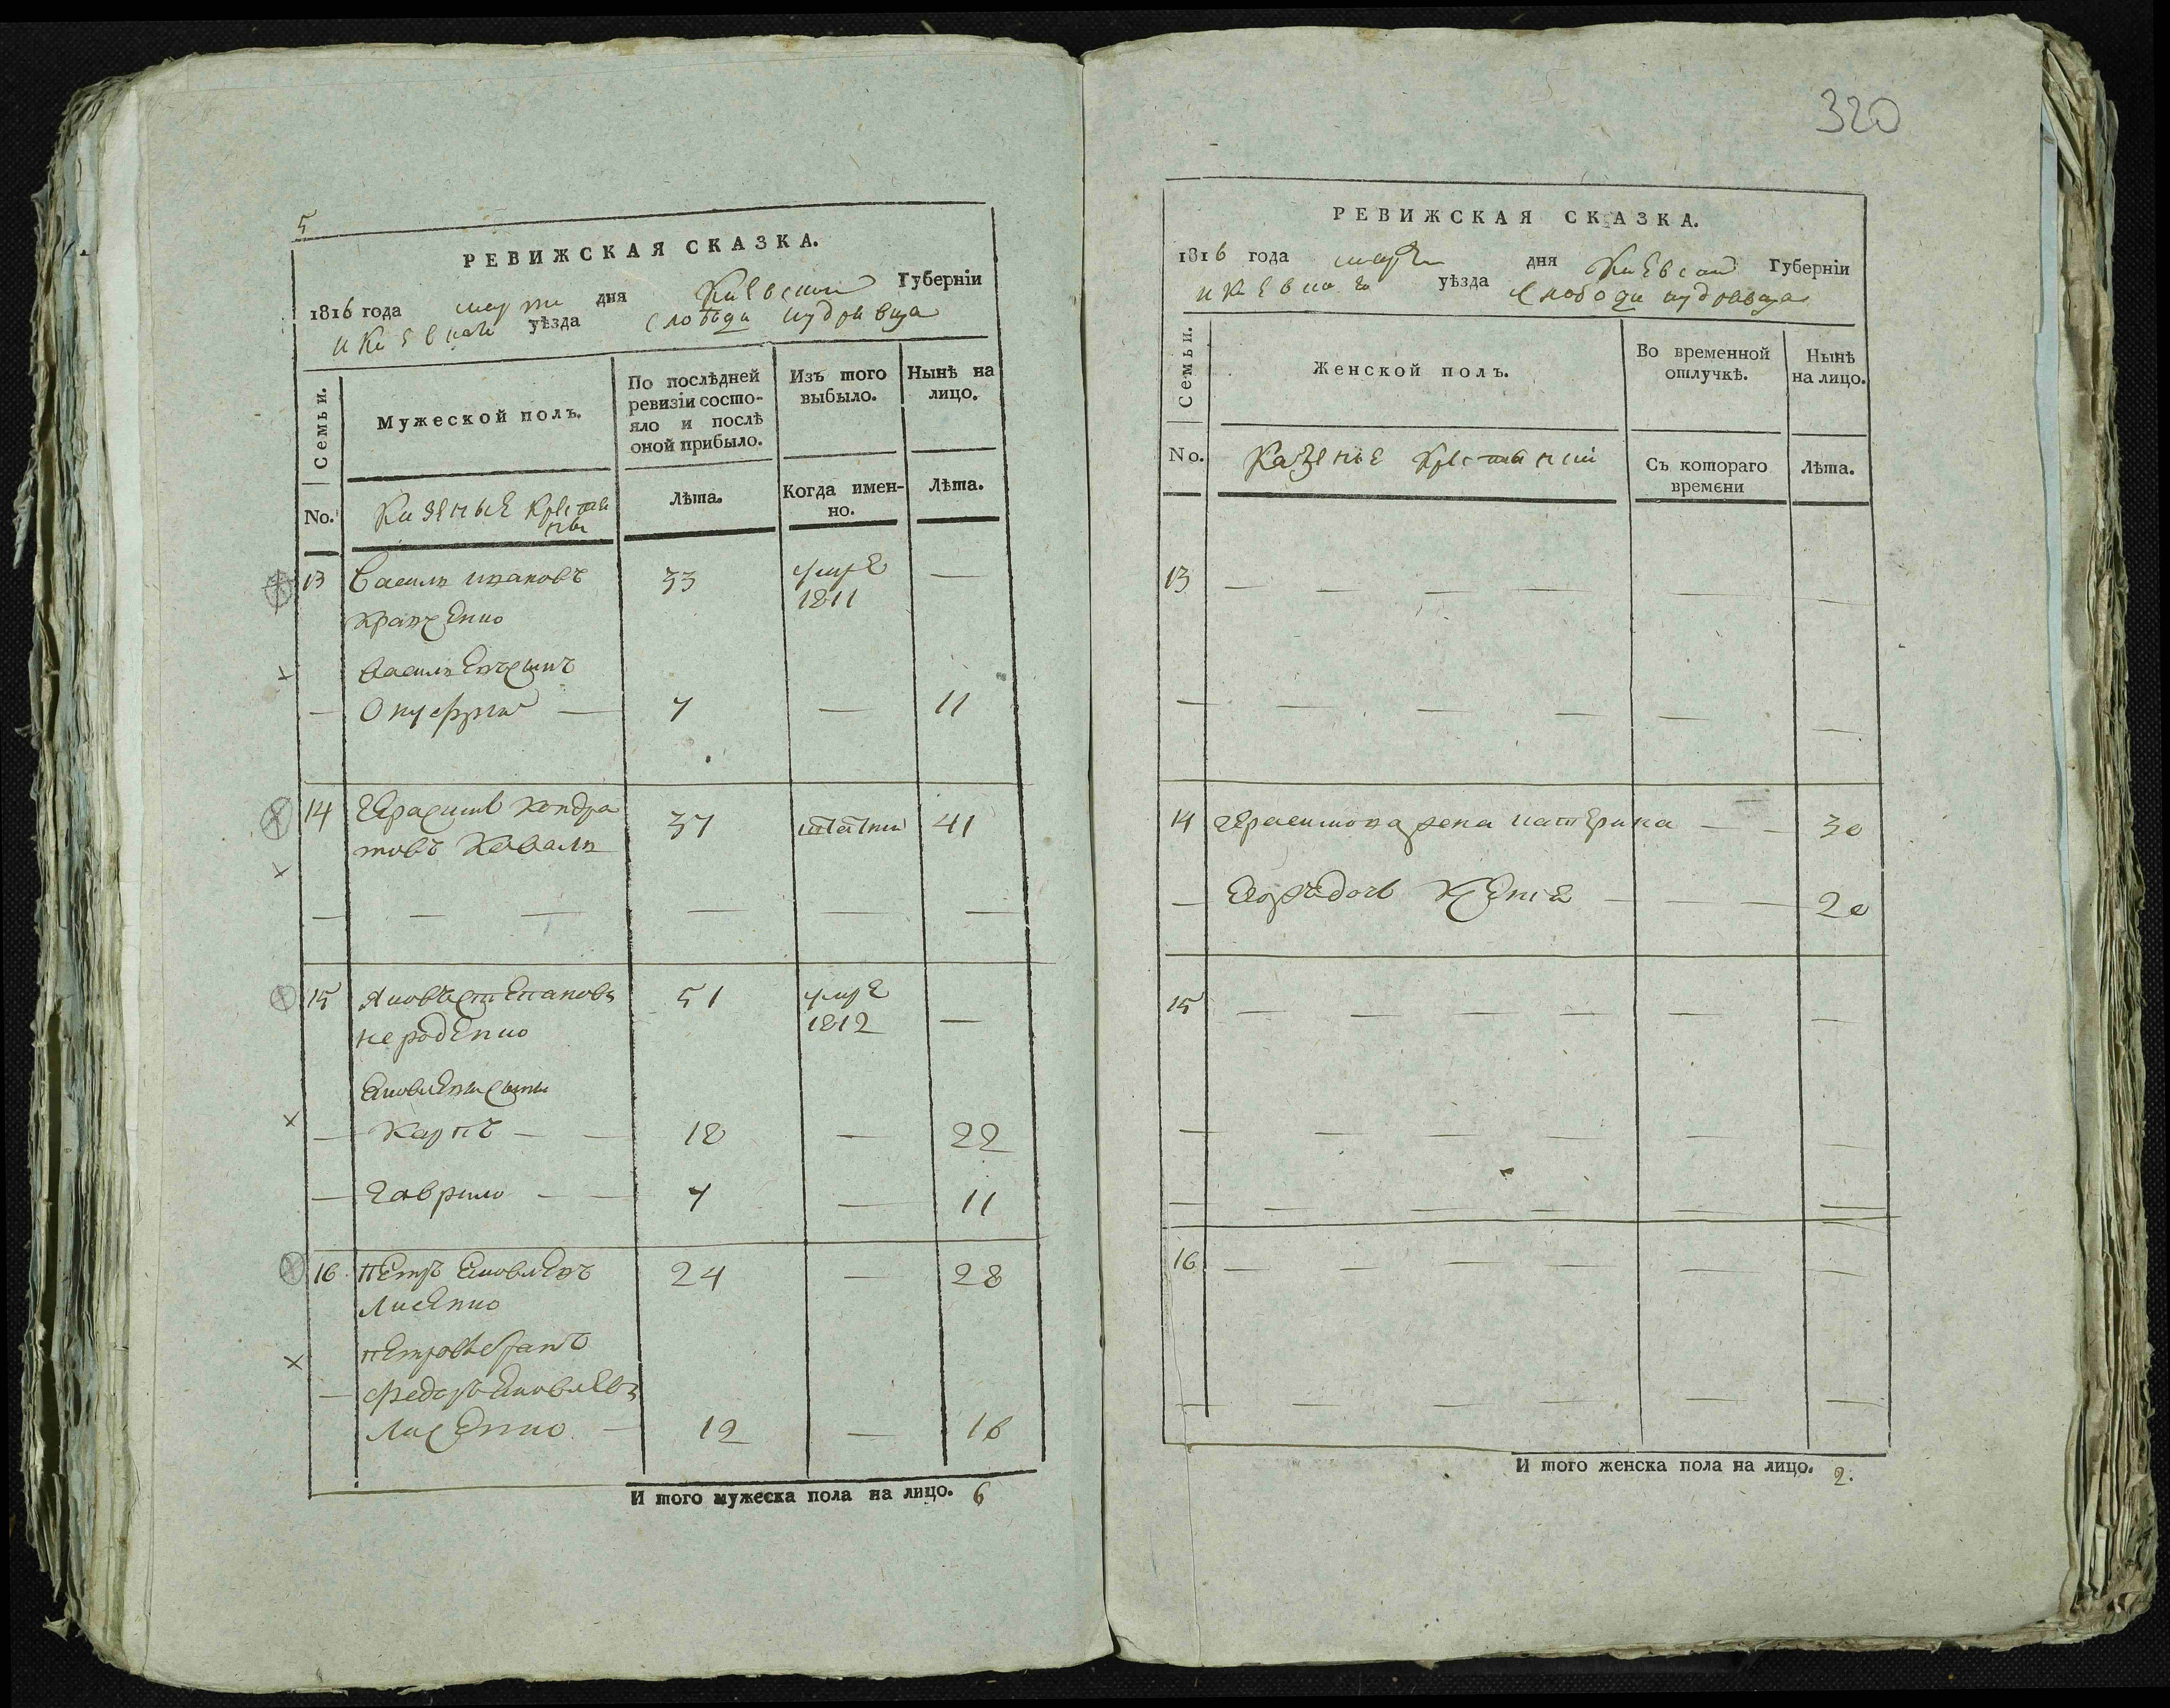 5
РЕВИЖСКАЯ СКАЗКА.
1816 года марта дня Киевской Губерніи
и Киевскаго уѣзда слободы кудрявца
Семьи.
Мужеской полъ.
По послѣдней ревизіи состо-
яло и послѣ
оной прибыло.
Изъ того
выбыло.
Нынѣ на
лицо.
No.
Казенные крестьяне
Лѣта.
Когда имен-
но.
Лѣта.
13 Василь ивановъ 33 умре —
1811
Кравченко
Васильевъ сынъ
— Онуфрій — 7 — 11
14 Герасимъ кондра 37 41
товъ Коваль
— — — — — —
15 Яковъ степановъ 51 умре
1812 —
нероденко
Яковлевы сыны
— Карпъ — — 18 — 22
— гаврило — — 7 — 11
16 петръ Яковлевъ 24 — 28
Лисенко
петровъ братъ
— федоръ Яковлевъ
Лисенко — 12 — 16
И того мужеска пола на лицо. 6
320
РЕВИЖСКАЯ СКАЗКА.
1816 года марта дня Киевской Губерніи
и Киевскаго уѣзда Слободы кудрявца
Семьи.
Женской полъ.
Во временной
отлучкѣ.
Нынѣ
на лицо.
No.
Казенные крестьянки
Съ котораго
времени
Лѣта.
13 — — — — — —
— — — — — —
14 герасимова жена катерина — — 30
— Ксенія — — — 20
15 — — — — — —
— — — — — —
— — — — — —
16 — — — — — —
— — — — — —
И того женска пола на лицо. 2.